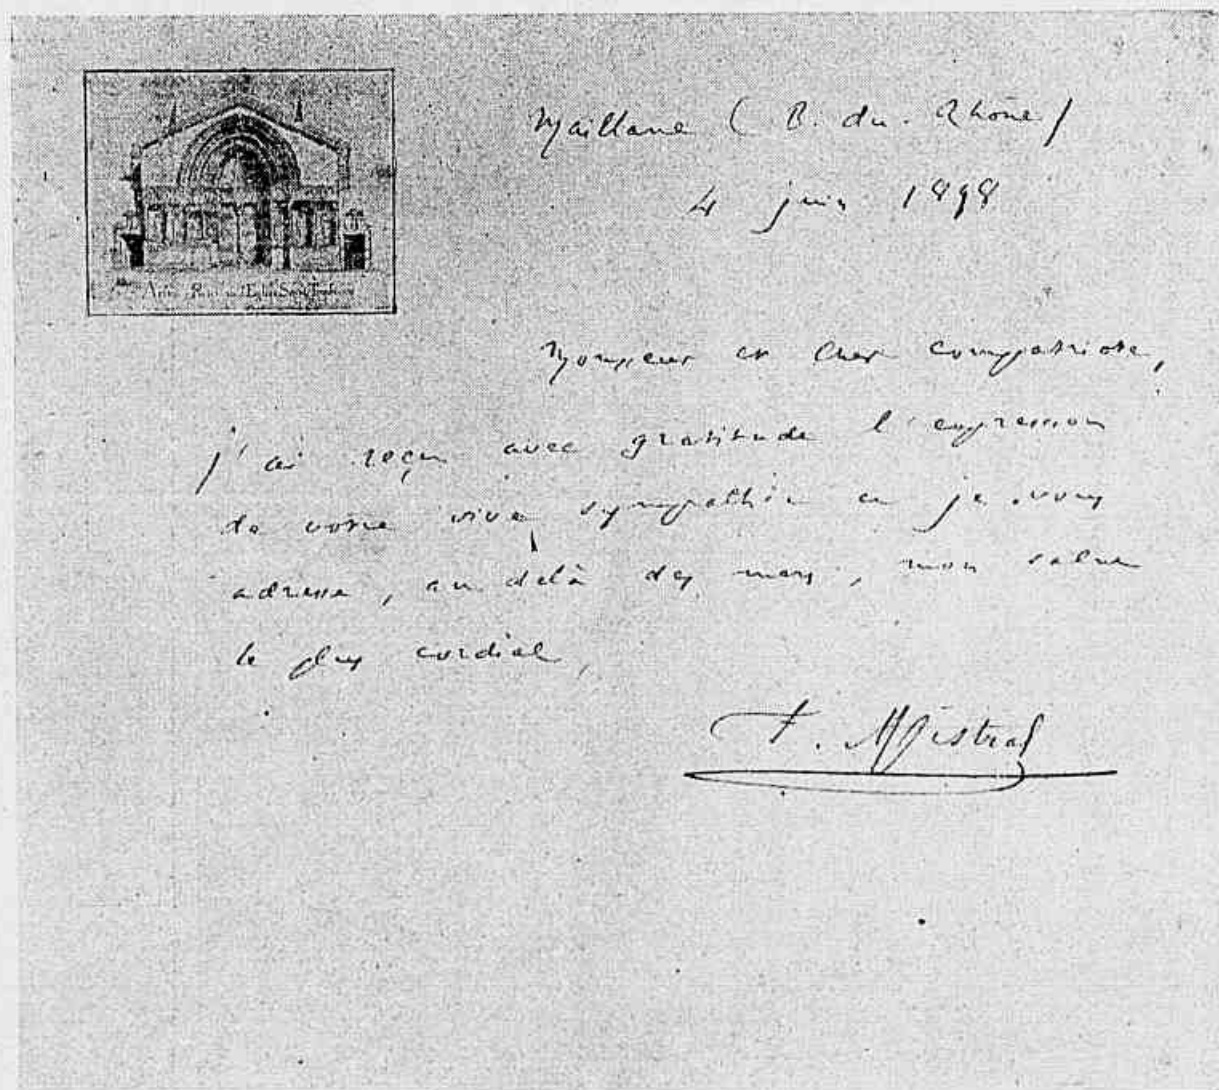 Arles - Portail de l'Eglise Saint Trophime
Maillane (B. du. Rhône)
4 juin 1898
Monsieur et cher compatriote,
j'ai reçu avec gratitude l'expression
de votre vive sympathie et je vous
adresse, au delà des mers, mon salut
le plus cordial,
F. Mistral